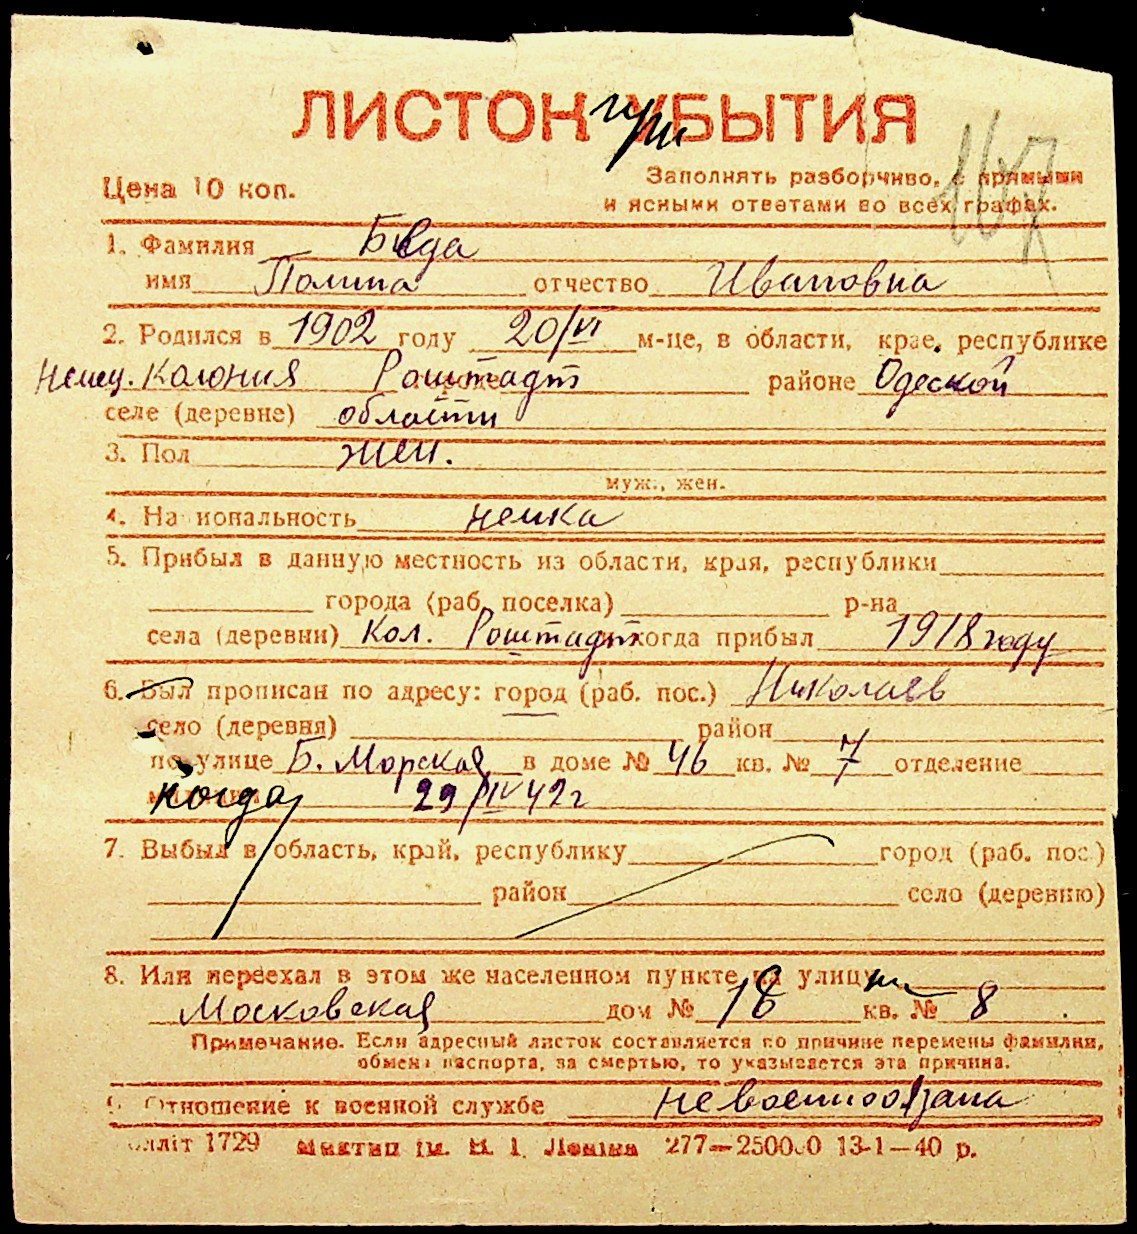 ЛИСТОК при УБЫТИЯ
Цена 10 коп.
Заполнять разборчиво, с прямыми
и ясными ответами во всех графах.
1. Фамилия Беда
имя Полина отчество Ивановна
2. Родился в 1902 году 20/VI м-це, в области, крае, республике
Немец. Колония Роштадт районе Одеской
селе (деревне) области
3. Пол жен.
муж., жен.
4. На иональность немка
5. Прибыл в данную местность из области, края, республики
города (раб. поселка) р-на
села (деревни) Кол. Роштадт когда прибыл 1918 году
6. Был прописан по адресу: город (раб. пос.) Николаев
село (деревня) район
по улице Б. Морская в доме № 46 кв. № 7 отделение
когда 29/IV 42 г
7. Выбыл в область, край, республику город (раб. пос.)
район село (деревню)
8. Или переехал в этом же населенном пункте на улицу
Московская дом № 18 кв. № 8
Примечание. Если адресный листок составляется по причине перемены фамилии,
обмена паспорта, за смертью, то указывается эта причина.
9. Отношение к военной службе невоеннообязана
1729 ім. В. І. Леніна 277—25000 13-1—40 р.